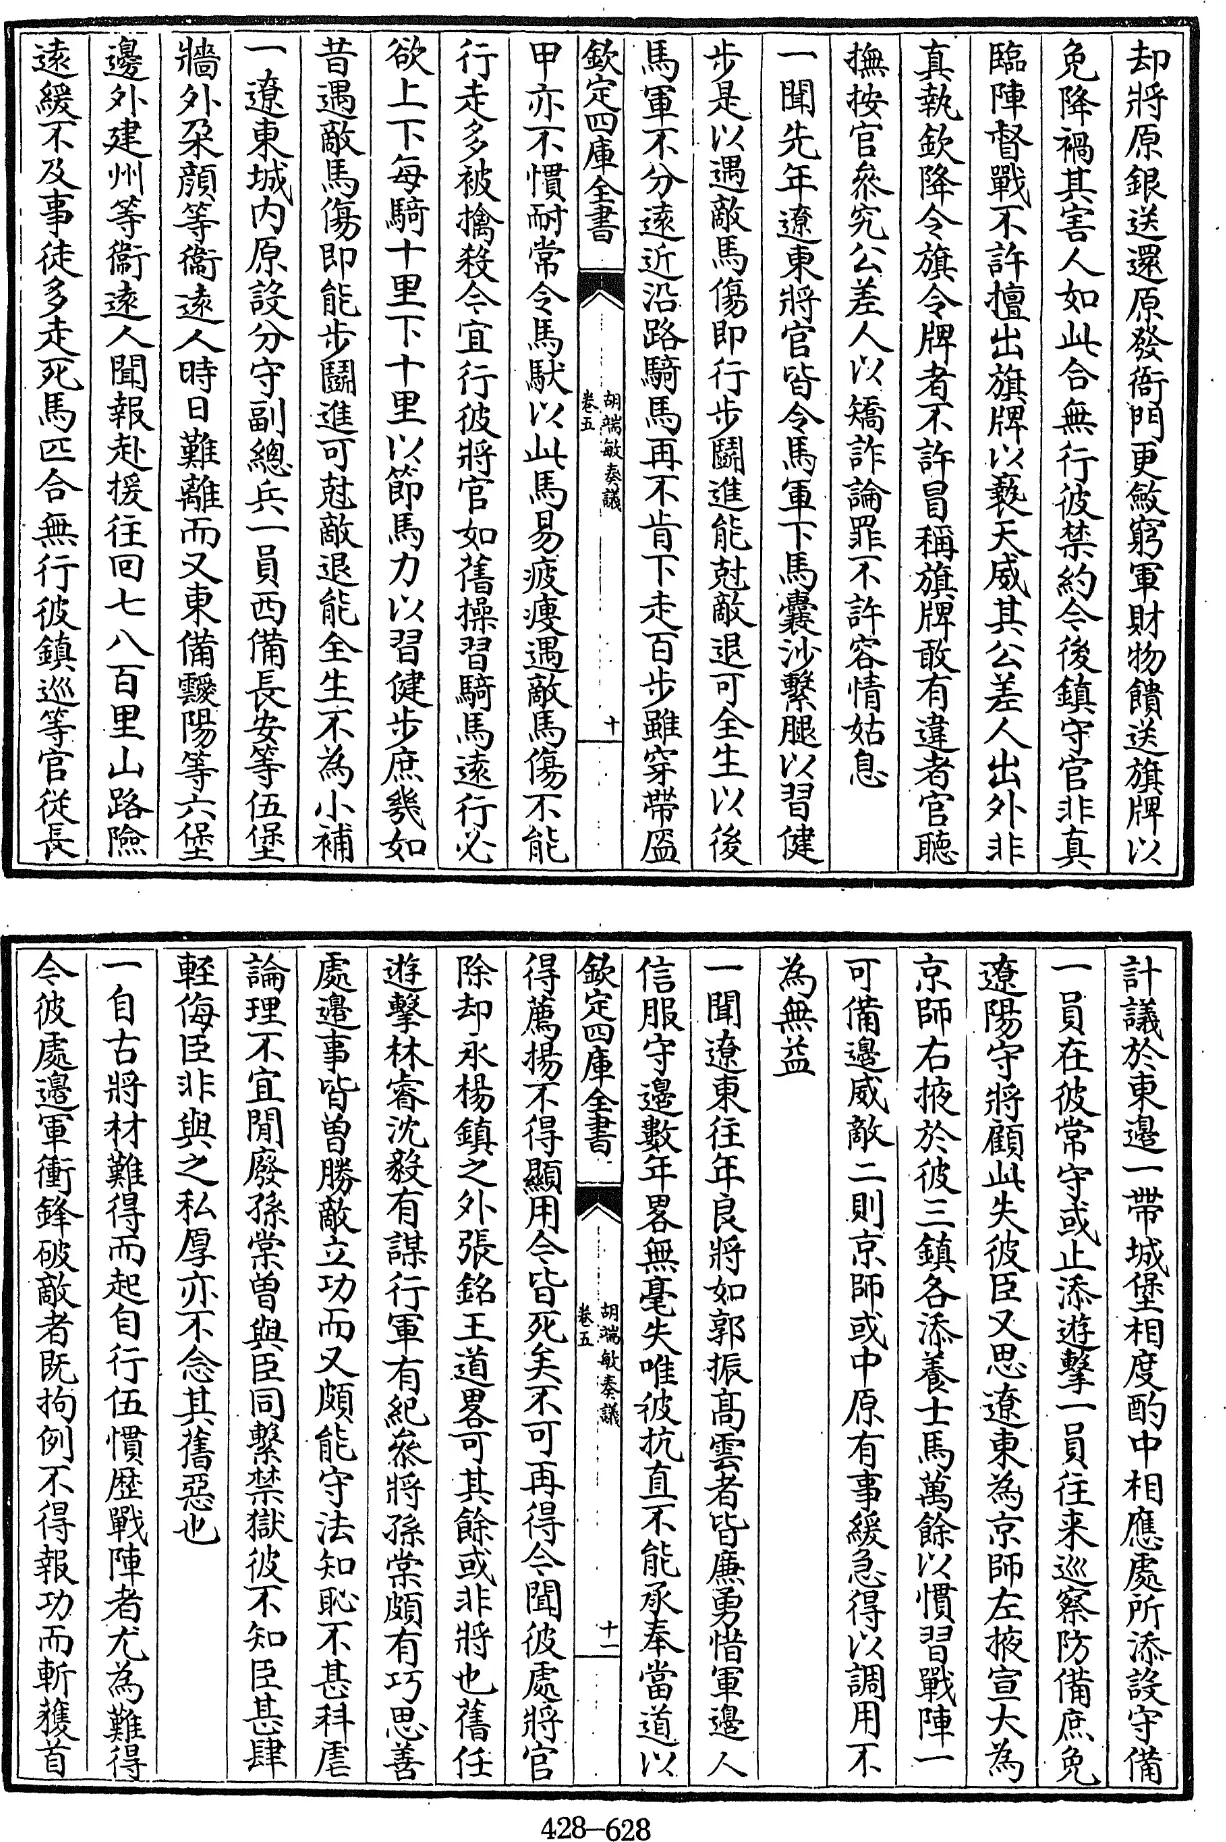 却將原銀送還原發衙門更斂窮軍財物饋送旗牌以
免降禍其害人如此合無行彼禁約令後鎮守官非真
臨陣督戰不許擅出旗牌以褻天威其公差人出外非
真執欽降令旗令牌者不許冒稱旗牌敢有違者官聽
撫按官叅究公差人以矯詐論罪不許容情姑息
一聞先年遼東將官皆令馬軍下馬囊沙繫腿以習健
步是以遇敵馬傷即行步鬭進能尅敵退可全生以後
馬軍不分遠近沿路騎馬再不肯下走百步雖穿帶盔
欽定四庫全書
胡端敏奏議
卷五
十
甲亦不慣耐常令馬馱以此馬易疲瘦遇敵馬傷不能
行走多被擒殺今宜行彼將官如舊操習騎馬遠行必
欲上下每騎十里下十里以節馬力以習健步庶幾如
昔遇敵馬傷即能步鬭進可尅敵退能全生不為小補
一遼東城內原設分守副總兵一員西備長安等伍堡
牆外朶顔等衞遠人時日難離而又東備靉陽等六堡
邊外建州等衞遠人聞報赴援往回七八百里山路險
遠緩不及事徒多走死馬匹合無行彼鎮巡等官從長
計議於東邊一帶城堡相度酌中相應處所添設守備
一員在彼常守或止添遊擊一員往来巡察防備庶免
遼陽守將顧此失彼臣又思遼東為京師左掖宣大為
京師右掖於彼三鎮各添養士馬萬餘以慣習戰陣一
可備邊威敵二則京師或中原有事緩急得以調用不
為無益
一聞遼東往年良將如郭振髙雲者皆廉勇惜軍邊人
信服守邊數年畧無毫失唯彼抗直不能承奉當道以
欽定四庫全書
胡端敏奏議
卷五
十一
得薦揚不得顯用今皆死矣不可再得今聞彼處將官
除却永楊鎮之外張銘王道畧可其餘或非將也舊任
遊擊林睿沈毅有謀行軍有紀叅將孫棠頗有巧思善
處邊事皆曽勝敵立功而又頗能守法知恥不甚科虐
論理不宜閒廢孫棠曽與臣同繫禁獄彼不知臣甚肆
輕侮臣非與之私厚亦不念其舊惡也
一自古將材難得而起自行伍慣歴戰陣者尤為難得
今彼處邊軍衝鋒破敵者既拘例不得報功而斬獲首
428-628